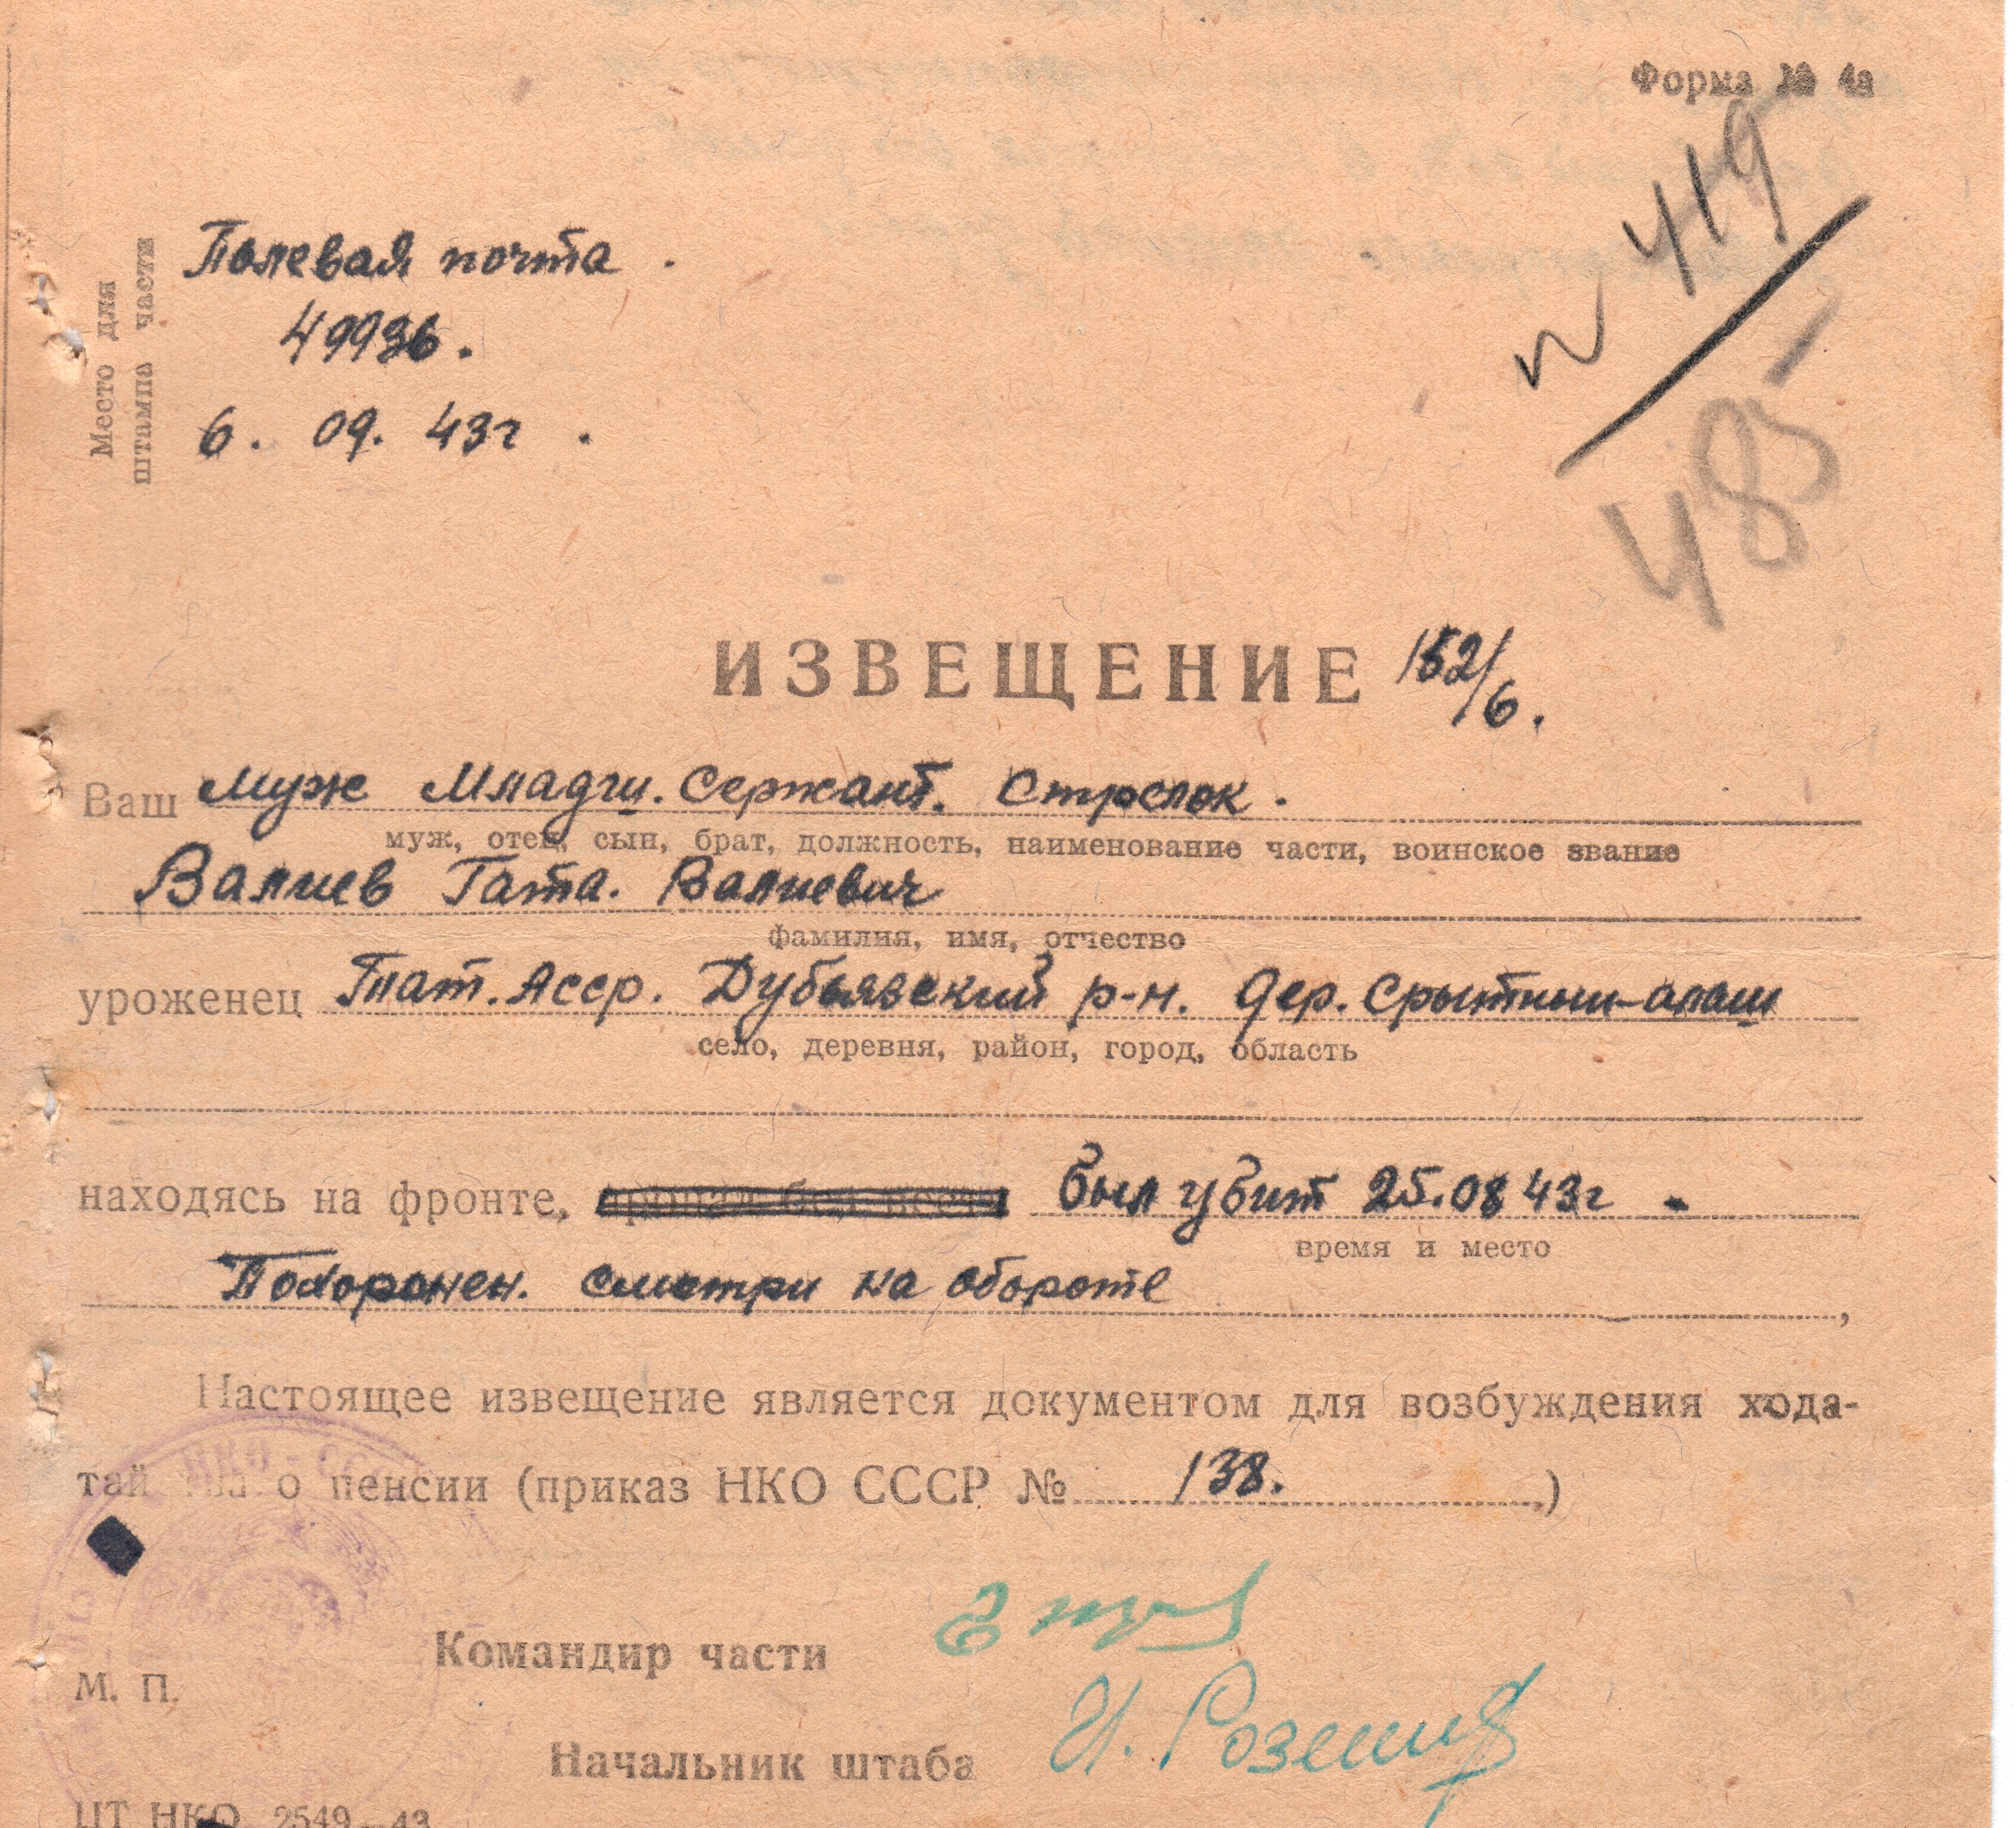 Форма № 4а
№ 419
485
Место для
штампа части
Полевая почта
49936.
6. 09. 43г.
ИЗВЕЩЕНИЕ 152/6.
Ваш муж Младш. Сержант. Стрелок.
муж, отец, сын, брат, должность, наименование части, воинское звание
Валиев Гата. Валиевич
фамилия, имя, отчество
уроженец Тат. Асср. Дубьязский р-н. дер.
село, деревня, район, город, область
находясь на фронте, пропал без вести был убит 25.08 43г
время и место
Похоронен. смотри на обороте,
Настоящее извещение является документом для возбуждения хода-
тайства о пенсии (приказ НКО СССР № 138.)
НКО - СССР
Командир части
М. П.
Начальник штаба
ЦТ НКО 2549—43